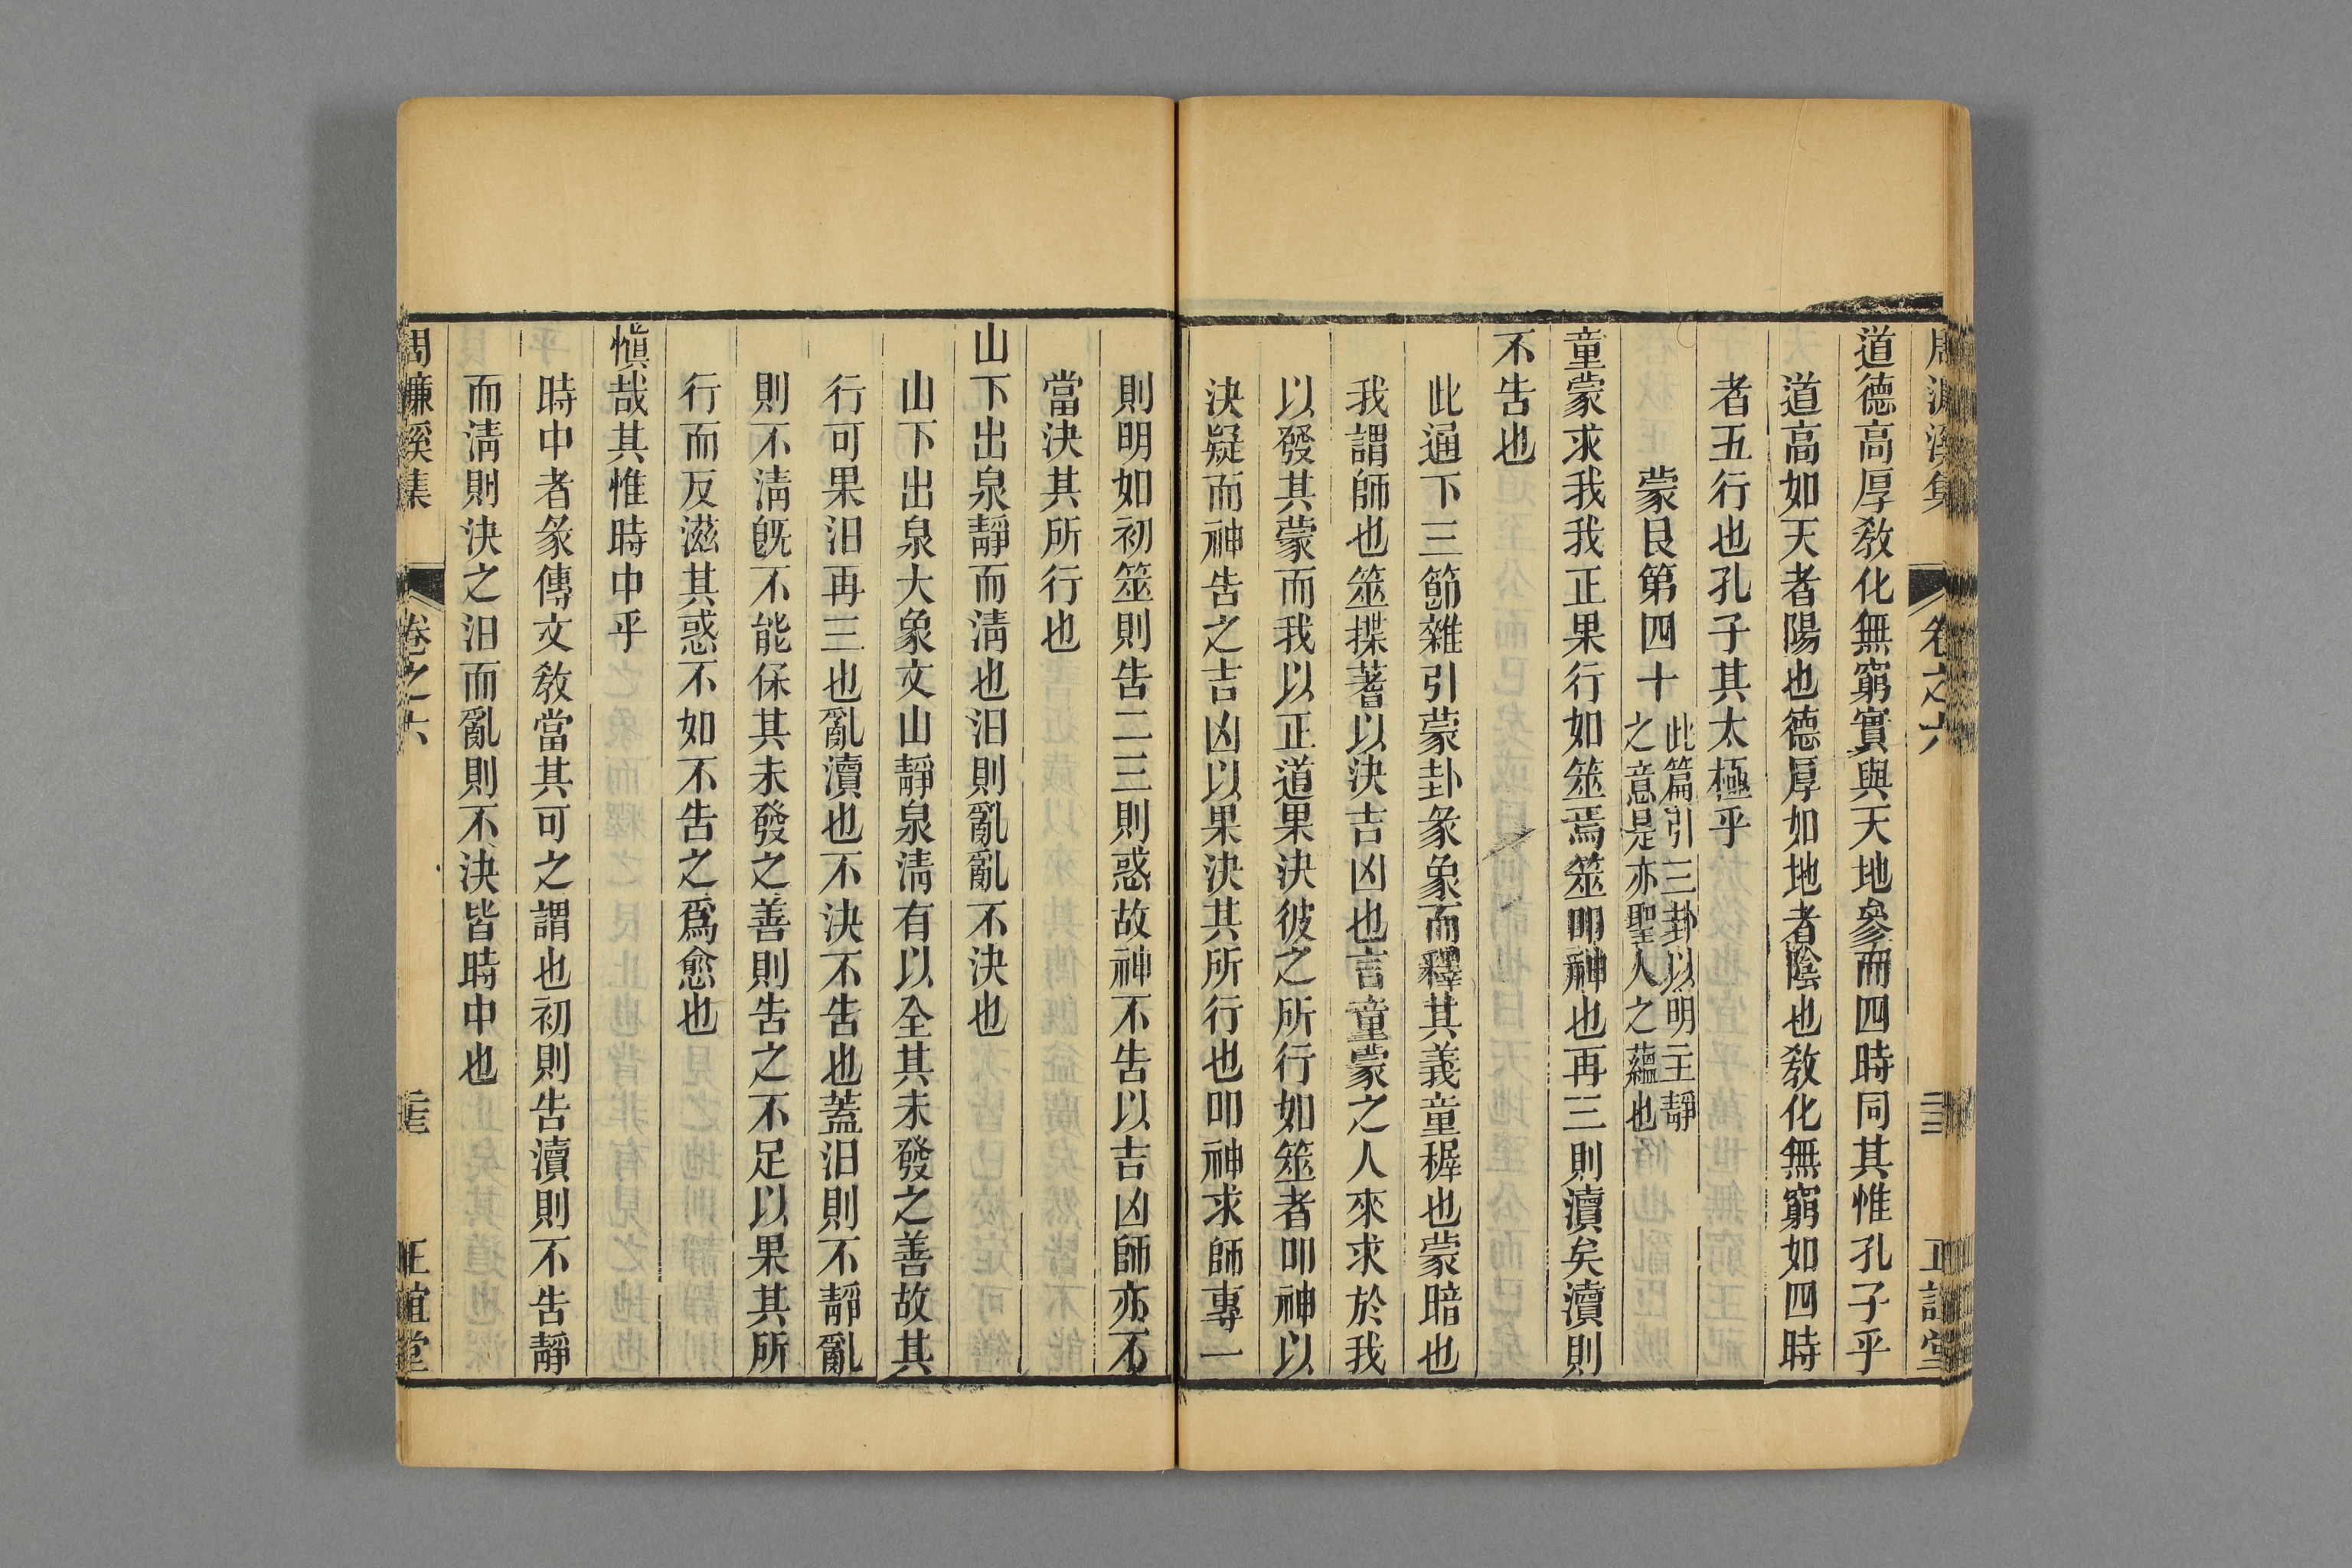 周濂溪集 卷之六 正誼堂
道德高厚敎化無窮實與天地參而四時同其惟孔子乎
道高如天者陽也德厚如地者陰也敎化無窮如四時
者五行也孔子其太極乎
蒙艮第四十
此篇引三卦以明主靜
之意是亦聖人之蘊也
童蒙求我我正果行如筮焉筮叩神也再三則瀆矣瀆則
不告也
此通下三節雜引蒙卦彖象而釋其義童穉也蒙暗也
我謂師也筮揲蓍以決吉凶也言童蒙之人來求於我
以發其蒙而我以正道果決彼之所行如筮者叩神以
決疑而神告之吉凶以果決其所行也叩神求師專一
則明如初筮則告二三則惑故神不告以吉凶師亦不
當決其所行也
山下出泉靜而淸也汨則亂亂不決也
山下出泉大象文山靜泉淸有以全其未發之善故其
行可果汨再三也亂瀆也不決不告也蓋汨則不靜亂
則不淸旣不能保其未發之善則告之不足以果其所
行而反滋其惑不如不告之爲愈也
愼哉其惟時中乎
時中者彖傳文敎當其可之謂也初則告瀆則不告靜
而淸則決之汨而亂則不決皆時中也
周濂溪集 卷之六 正誼堂